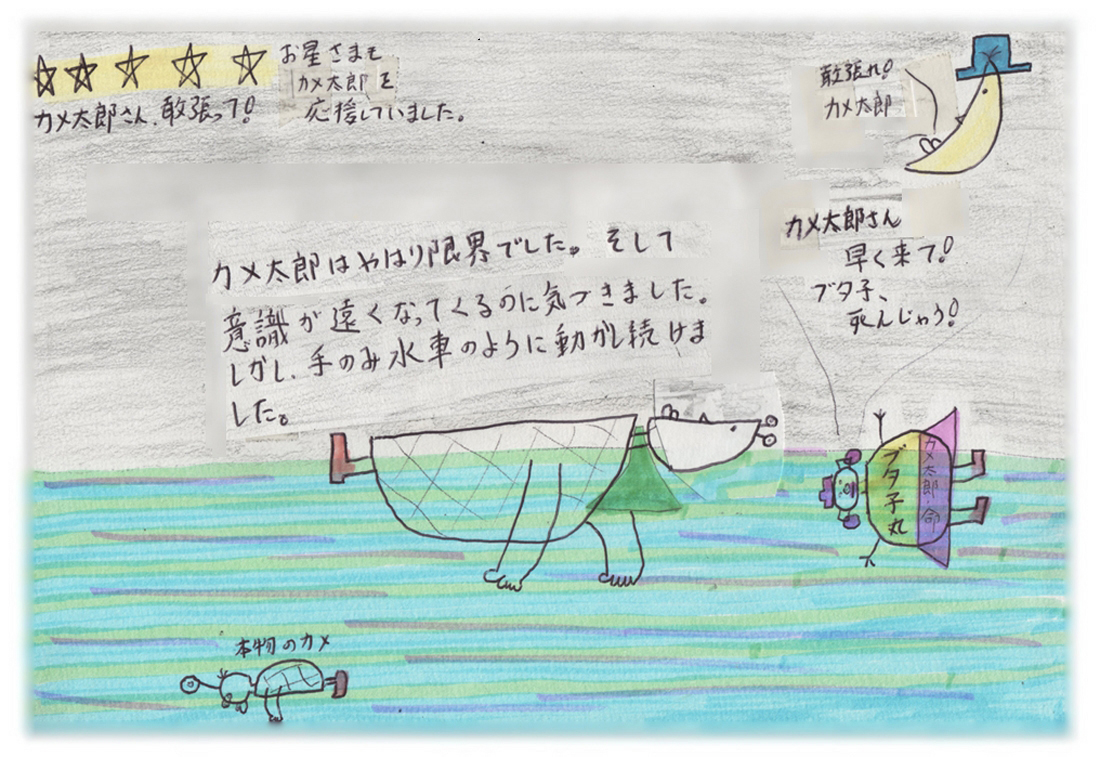 お星さまも
カメ太郎を
応援していました。
カメ太郎さん、敢張って!
敢張れ!
カメ太郎
カメ太郎さん
早く来て!
ブタ子、
死んじゃう!
カメ太郎はやはり限界でした。そして
意識が遠くなってくるのに気づきました。
しかし、手のみ水車のように動かし続けま
した。
ブタ子丸
カメ太郎・命
本物のカメ